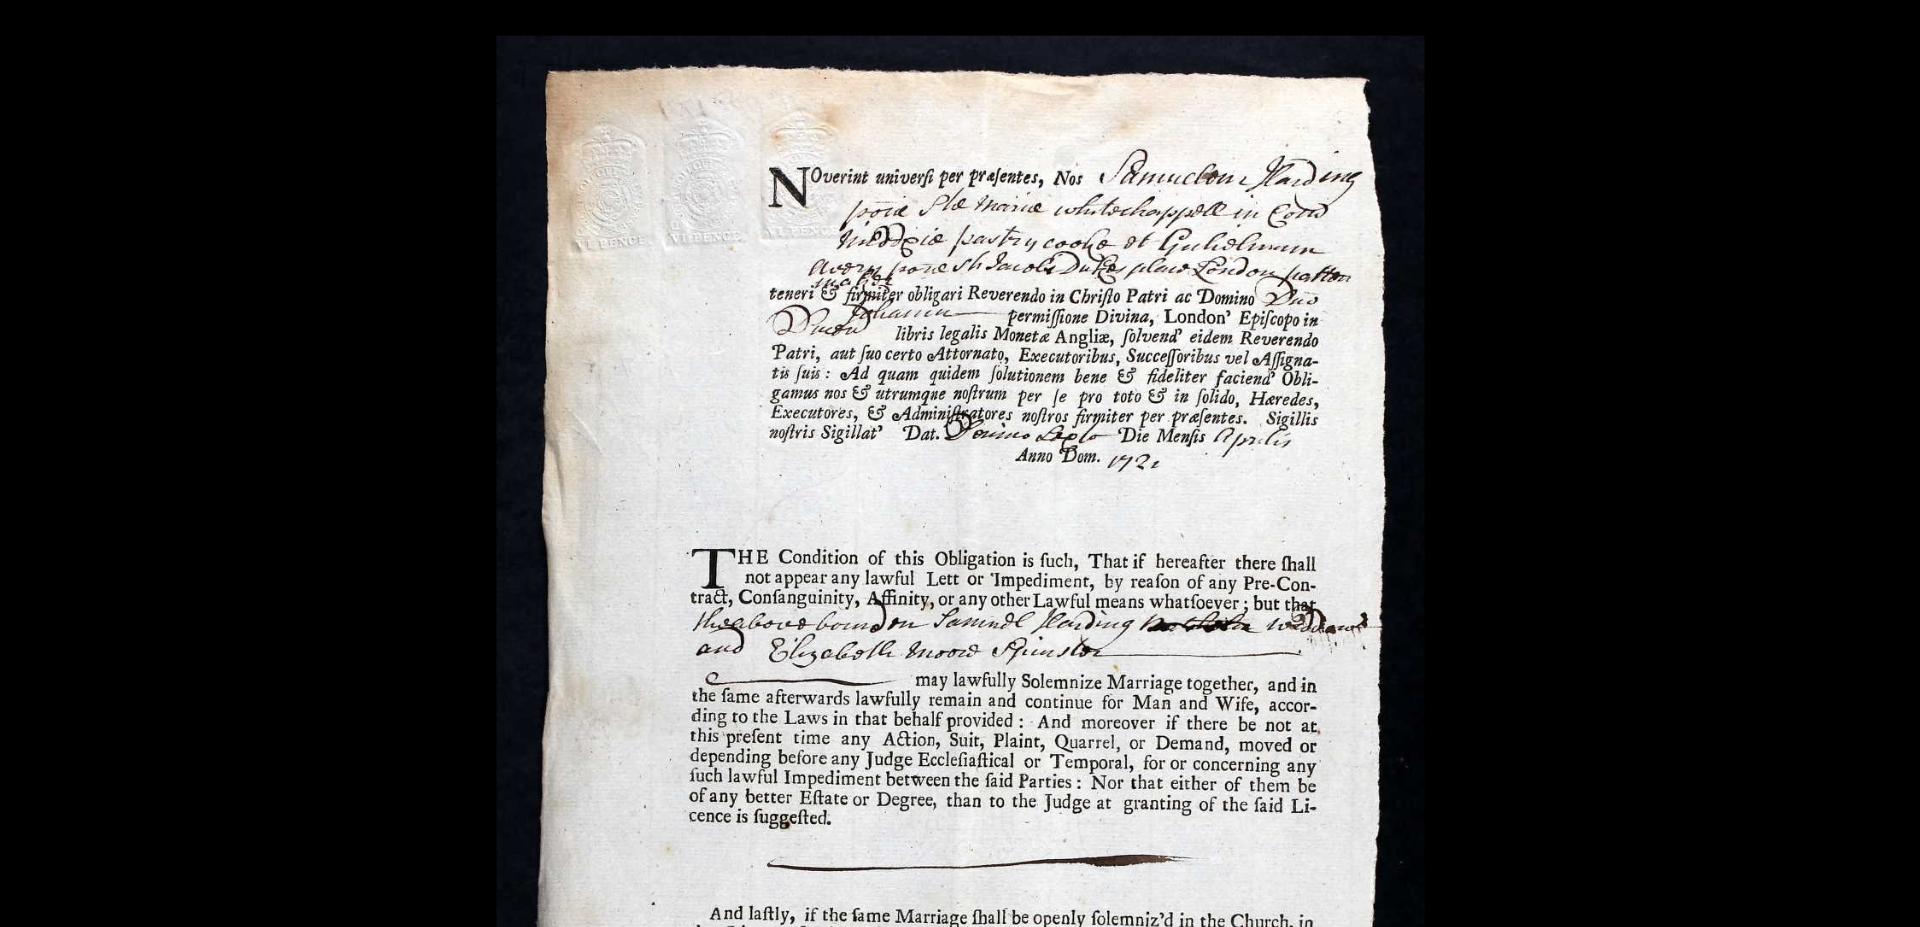 VI PENCE VI PENCE VI PENCE
NOverint universi per præsentes, Nos Samuelem Harding
poie Stæ Mariæ whitechappell in Com
Middxiæ pastry cooke et Gulielmum
Avery poie Sti Jacobi Dukes place London patten
maker
teneri & firmiter obligari Reverendo in Christo Patri ac Domino Dno
Johanni permissione Divina, London' Episcopo in
libris legalis Monetæ Angliæ, solvend' eidem Reverendo
Patri, aut suo certo Attornato, Executoribus, Successoribus vel Assigna-
tis suis: Ad quam quidem solutionem bene & fideliter faciend' Obli-
gamus nos & utrumque nostrum per se pro toto & in solido, Hæredes,
Executores, & Administratores nostros firmiter per præsentes. Sigillis
nostris Sigillat' Dat. Decimo Sexto Die Mensis Aprilis
Anno Dom. 1721
THE Condition of this Obligation is such, That if hereafter there shall
not appear any lawful Lett or Impediment, by reason of any Pre-Con-
tract, Consanguinity, Affinity, or any other Lawful means whatsoever; but that
the above bounden Samuel Harding widdower
and Elizabeth Moore Spinster
may lawfully Solemnize Marriage together, and in
the same afterwards lawfully remain and continue for Man and Wife, accor-
ding to the Laws in that behalf provided: And moreover if there be not at
this present time any Action, Suit, Plaint, Quarrel, or Demand, moved or
depending before any Judge Ecclesiastical or Temporal, for or concerning any
such lawful Impediment between the said Parties: Nor that either of them be
of any better Estate or Degree, than to the Judge at granting of the said Li-
cence is suggested.
And lastly, if the same Marriage shall be openly solemniz'd in the Church, in